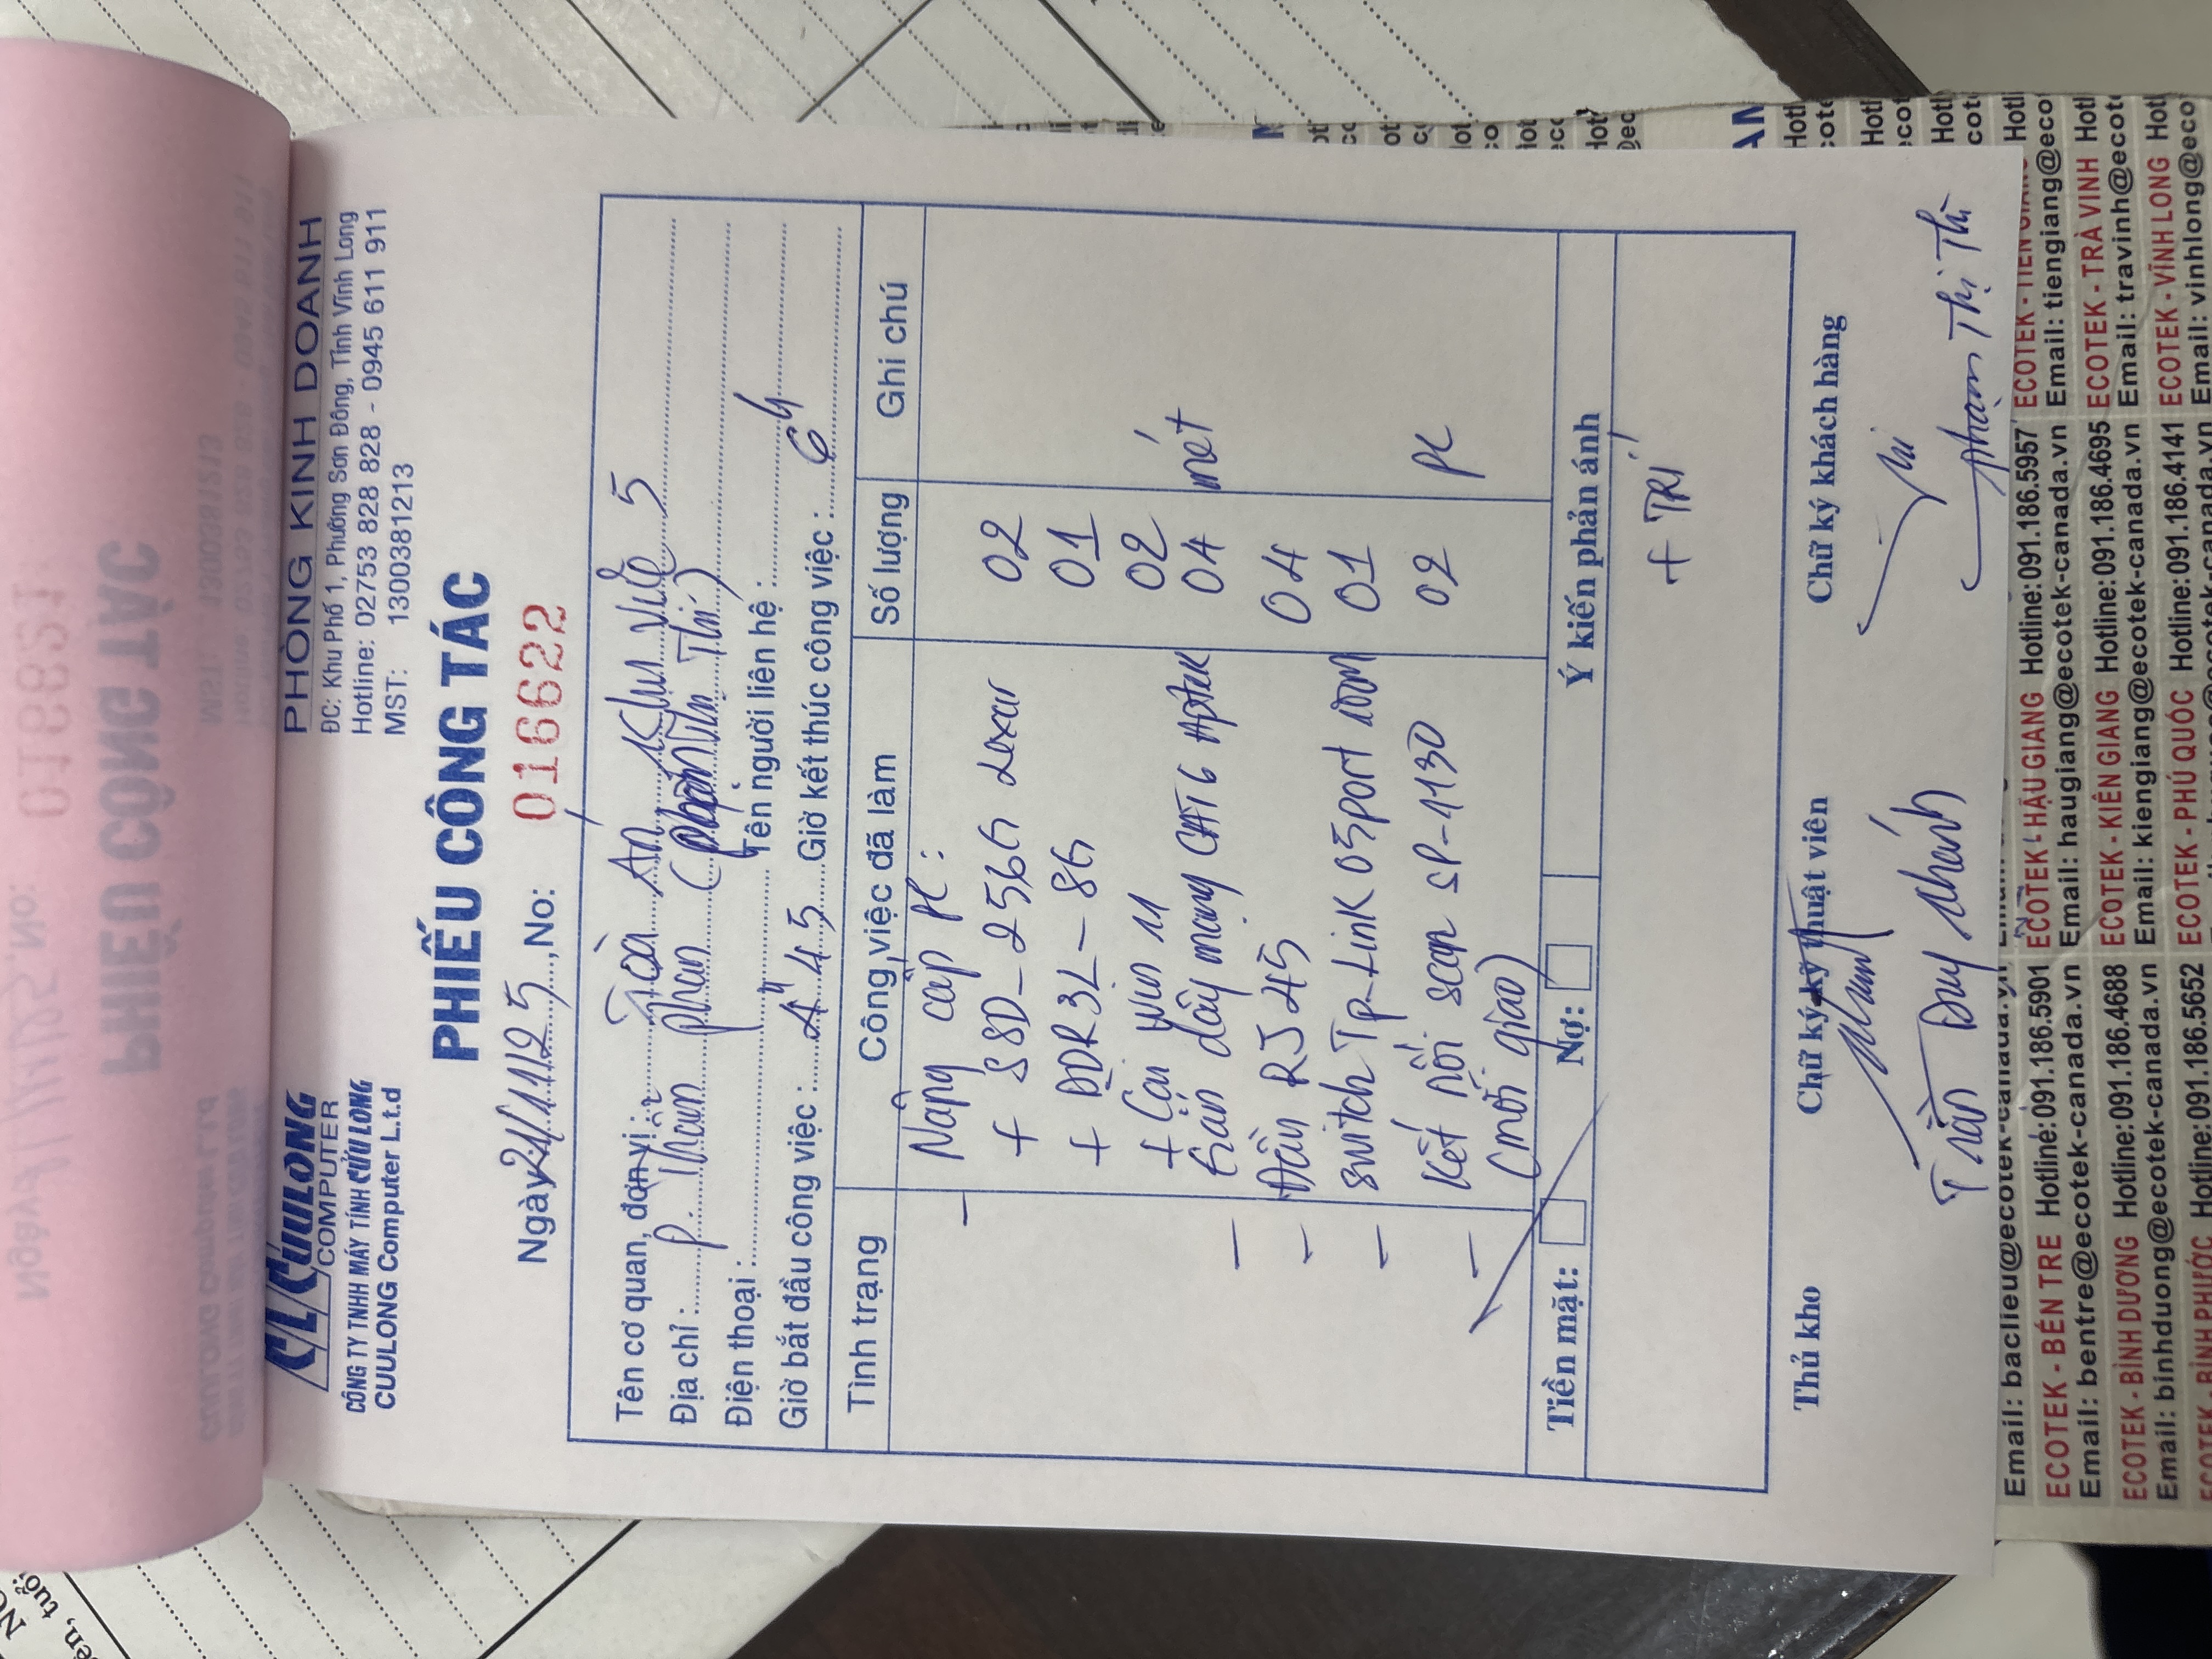 CL CUULONG
COMPUTER
CÔNG TY TNHH MÁY TÍNH CỬU LONG
CUULONG Computer L.t.d
PHÒNG KINH DOANH
ĐC: Khu Phố 1, Phường Sơn Đông, Tỉnh Vĩnh Long
Hotline: 02753 828 828 - 0945 611 911
MST: 1300381213
PHIẾU CÔNG TÁC
Ngày 21/1125, No: 016622
Tên cơ quan, đơn vị: Toà Án Khu vực 5
Địa chỉ: P. Phan (Phạm Thị Thi)
Điện thoại: Tên người liên hệ:
Giờ bắt đầu công việc: 4h45 Giờ kết thúc công việc: 6h
Tình trạng Công việc đã làm Số lượng Ghi chú
- Nâng cấp PC:
+ SSD_256G Lexar 02
+ DDR3L - 8G 01
+ Cài win 11 02
- Bán dây mạng CAT6 Aptek 04 mét
- Đầu RJ45 04
- switch Tp-Link 05port 100M 01
- Kết nối scan SP-1130 02 PC
(mới giao)
Tiền mặt: Nợ: Ý kiến phản ánh
+ TRÍ
Thủ kho Chữ ký kỹ thuật viên Chữ ký khách hàng
Trần Duy Khánh Phạm Thị Thi
ECOTEK - BẾN TRE Hotline:091.186.5901
Email: bentre@ecotek-canada.vn
ECOTEK - BÌNH DƯƠNG Hotline:091.186.4688
Email: binhduong@ecotek-canada.vn
ECOTEK - BÌNH PHƯỚC Hotline:091.186.5652
ECOTEK - HẬU GIANG Hotline:091.186.5957
Email: haugiang@ecotek-canada.vn
ECOTEK - KIÊN GIANG Hotline:091.186.4695
Email: kiengiang@ecotek-canada.vn
ECOTEK - PHÚ QUỐC Hotline:091.186.4141
ECOTEK - TIỀN GIANG Hotl
Email: tiengiang@eco
ECOTEK - TRÀ VINH Hotl
Email: travinh@ecot
ECOTEK - VĨNH LONG Hotl
Email: vinhlong@eco